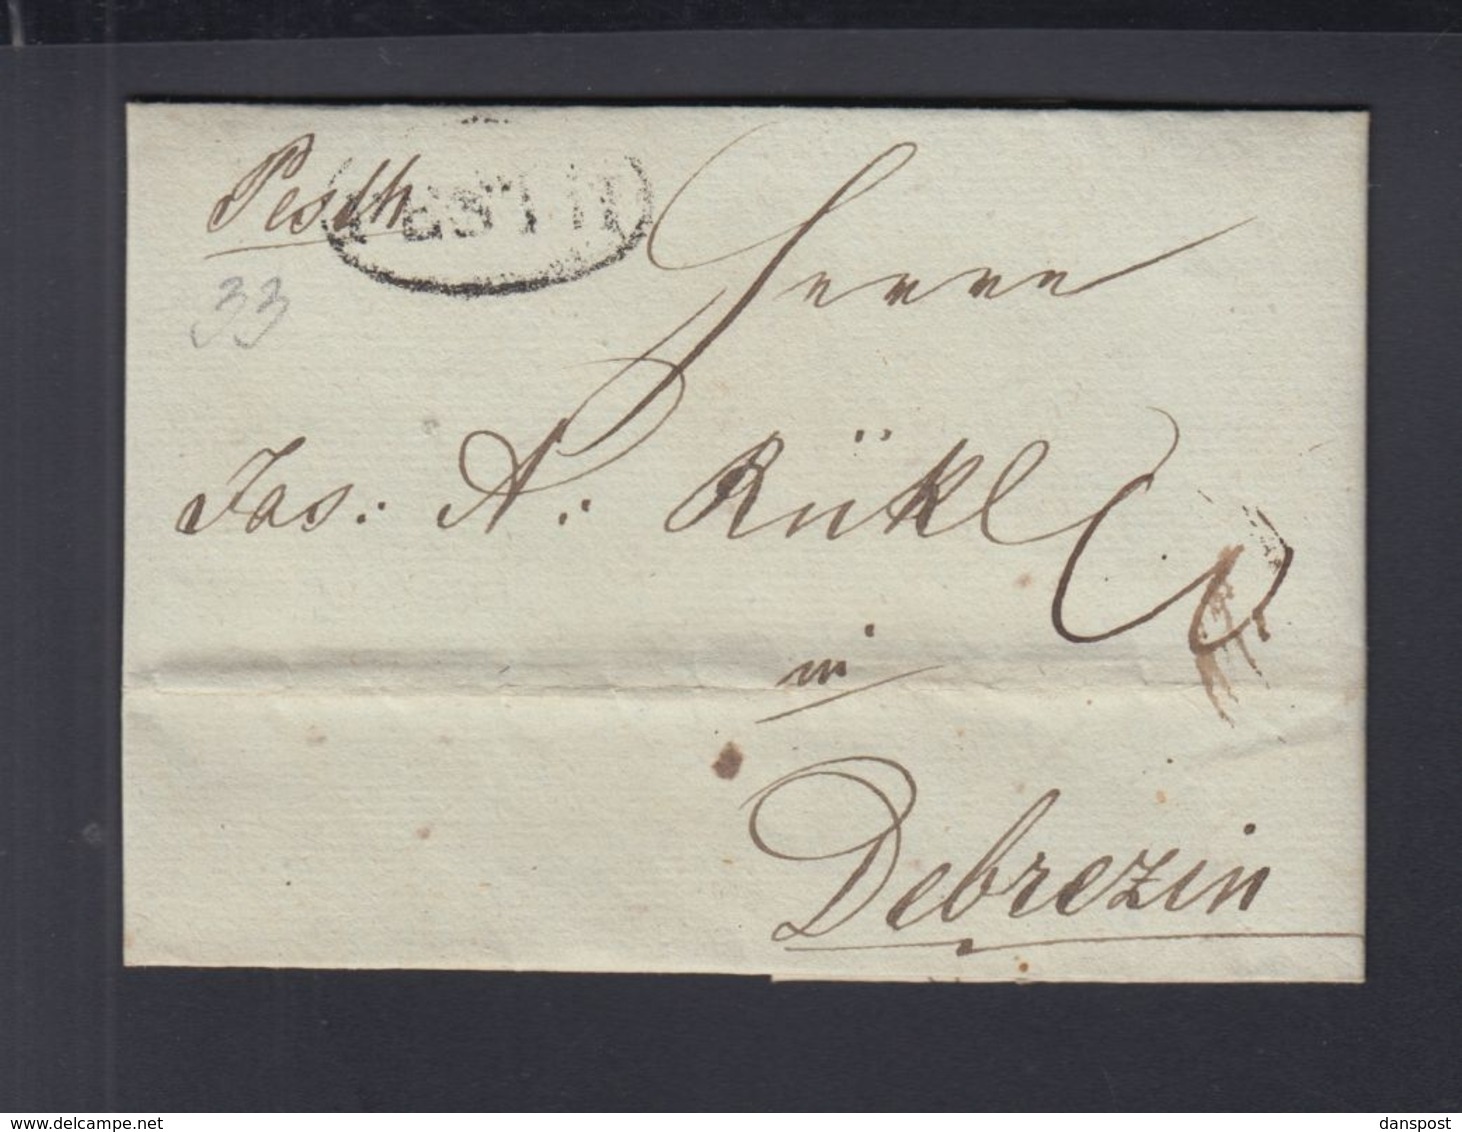 Pesth PESTH
33
Herrn
Jos: A: Rükl
in
Debrezin
www.delcampe.net
danspost